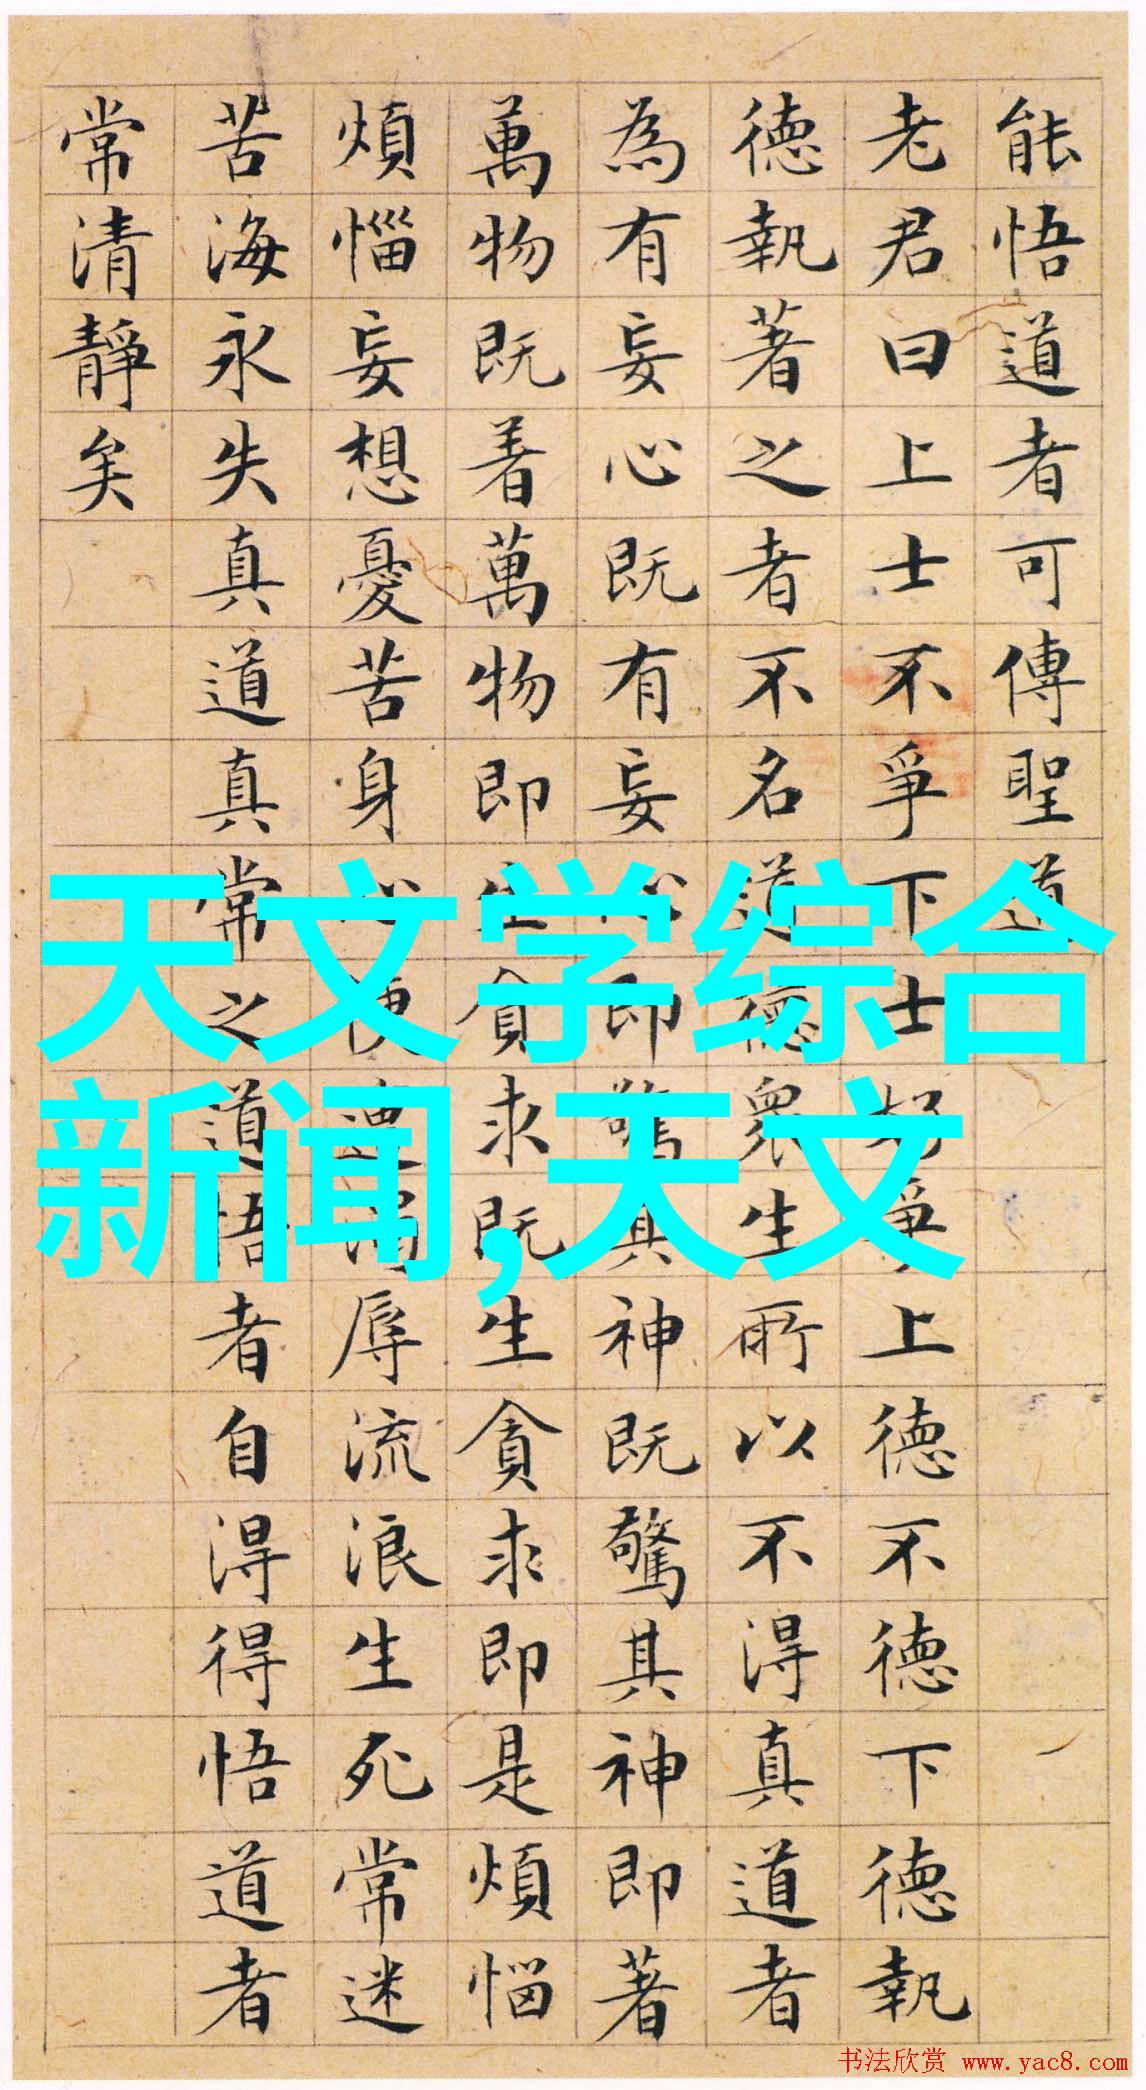 能悟道者可傳聖道
老君曰上士不爭下士好爭上德不德下德執
德執著之者不名道德衆生所以不得真道者
為有妄心既有妄心即驚其神既驚其神即著
萬物既著萬物即生貪求既生貪求即是煩惱
煩惱妄想憂苦身心便遭濁辱流浪生死常迷
苦海永失真道真常之道悟者自得得悟道者
常清靜矣
天文学综合
新闻,天文
书法欣赏 www.yac8.com